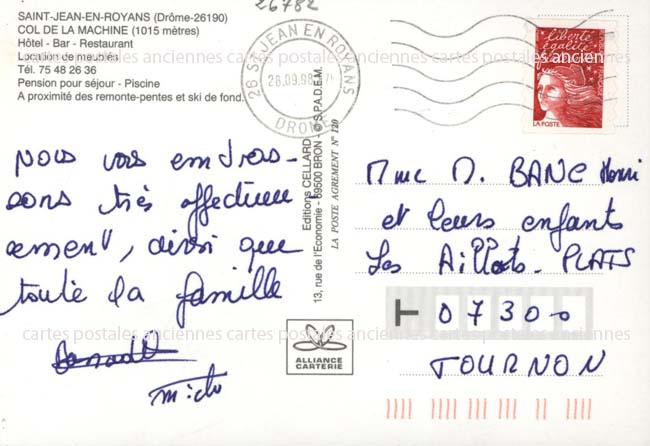 26782
SAINT-JEAN-EN-ROYANS (Drôme-26190)
COL DE LA MACHINE (1015 mètres)
Hôtel - Bar - Restaurant
Location de meublés
Tél. 75 48 26 36
Pension pour séjour - Piscine
A proximité des remonte-pentes et ski de fond.
26 ST JEAN EN ROYANS
26.09.98
DROME
liberté
égalité
LA POSTE
Nous vous embras-
sons très affectueu
sement, ainsi que
toute la famille
Editions CELLARD
13, rue de l'Economie - 69500 BRON - © S.P.A.D.E.M.
LA POSTE AGREMENT N° 120
ALLIANCE
CARTERIE
Mme M. BANC Henri
et leurs enfants
Les PLATS
07300
TOURNON
cartes postales anciennes cartes postales anciennes cartes postales anciennes